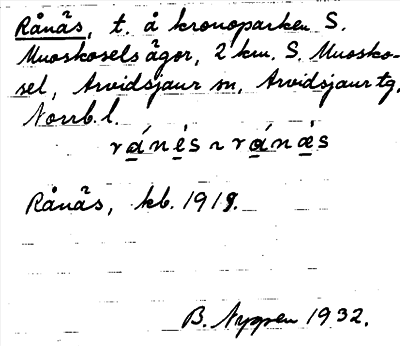 Rånäs, t. å kronoparken S.
Muoskosels ägor, 2 km. S. Muosko-
sel, Arvidsjaur sn, Arvidsjaur tg,
Norrb. l.
Rånäs, kb. 1918.
B. Nyppen 1932.